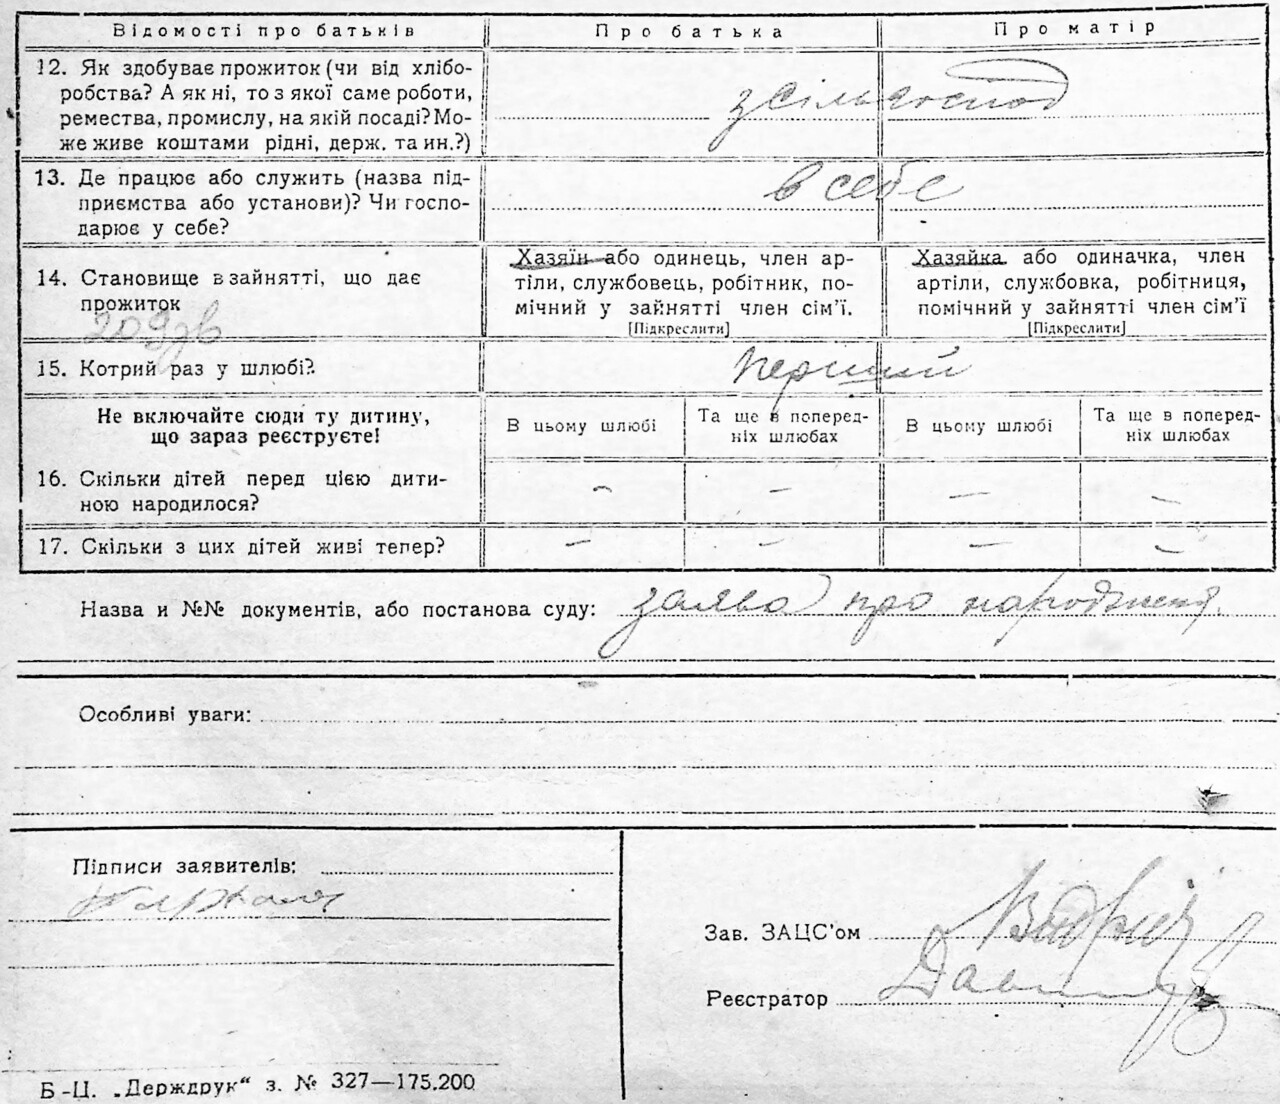 Відомості про батьків Про батька Про матір
12. Як здобуває прожиток (чи від хлібо-
робства? А як ні, то з якої саме роботи,
ремества, промислу, на якій посаді? Мо-
же живе коштами рідні, держ. та ин.?)
з сільхоспод
13. Де працює або служить (назва під-
приємства або установи)? Чи госпо-
дарює у себе?
в себе
14. Становище в зайнятті, що дає
прожиток
Хазяїн або одинець, член ар-
тіли, службовець, робітник, по-
мічний у зайнятті член сім'ї.
[Підкреслити]
Хазяйка або одиначка, член
артіли, службовка, робітниця,
помічний у зайнятті член сім'ї
[Підкреслити]
15. Котрий раз у шлюбі?
перший
Не включайте сюди ту дитину,
що зараз реєструєте!
В цьому шлюбі
Та ще в поперед-
ніх шлюбах
В цьому шлюбі
Та ще в поперед-
ніх шлюбах
16. Скільки дітей перед цією дити-
ною народилося?
— — — —
17. Скільки з цих дітей живі тепер?
— — — —
Назва и №№ документів, або постанова суду: заява про народження
Особливі уваги:
Підписи заявителів:
Зав. ЗАЦС'ом
Реєстратор
Б-Ц. „Держдрук“ з. № 327—175.200